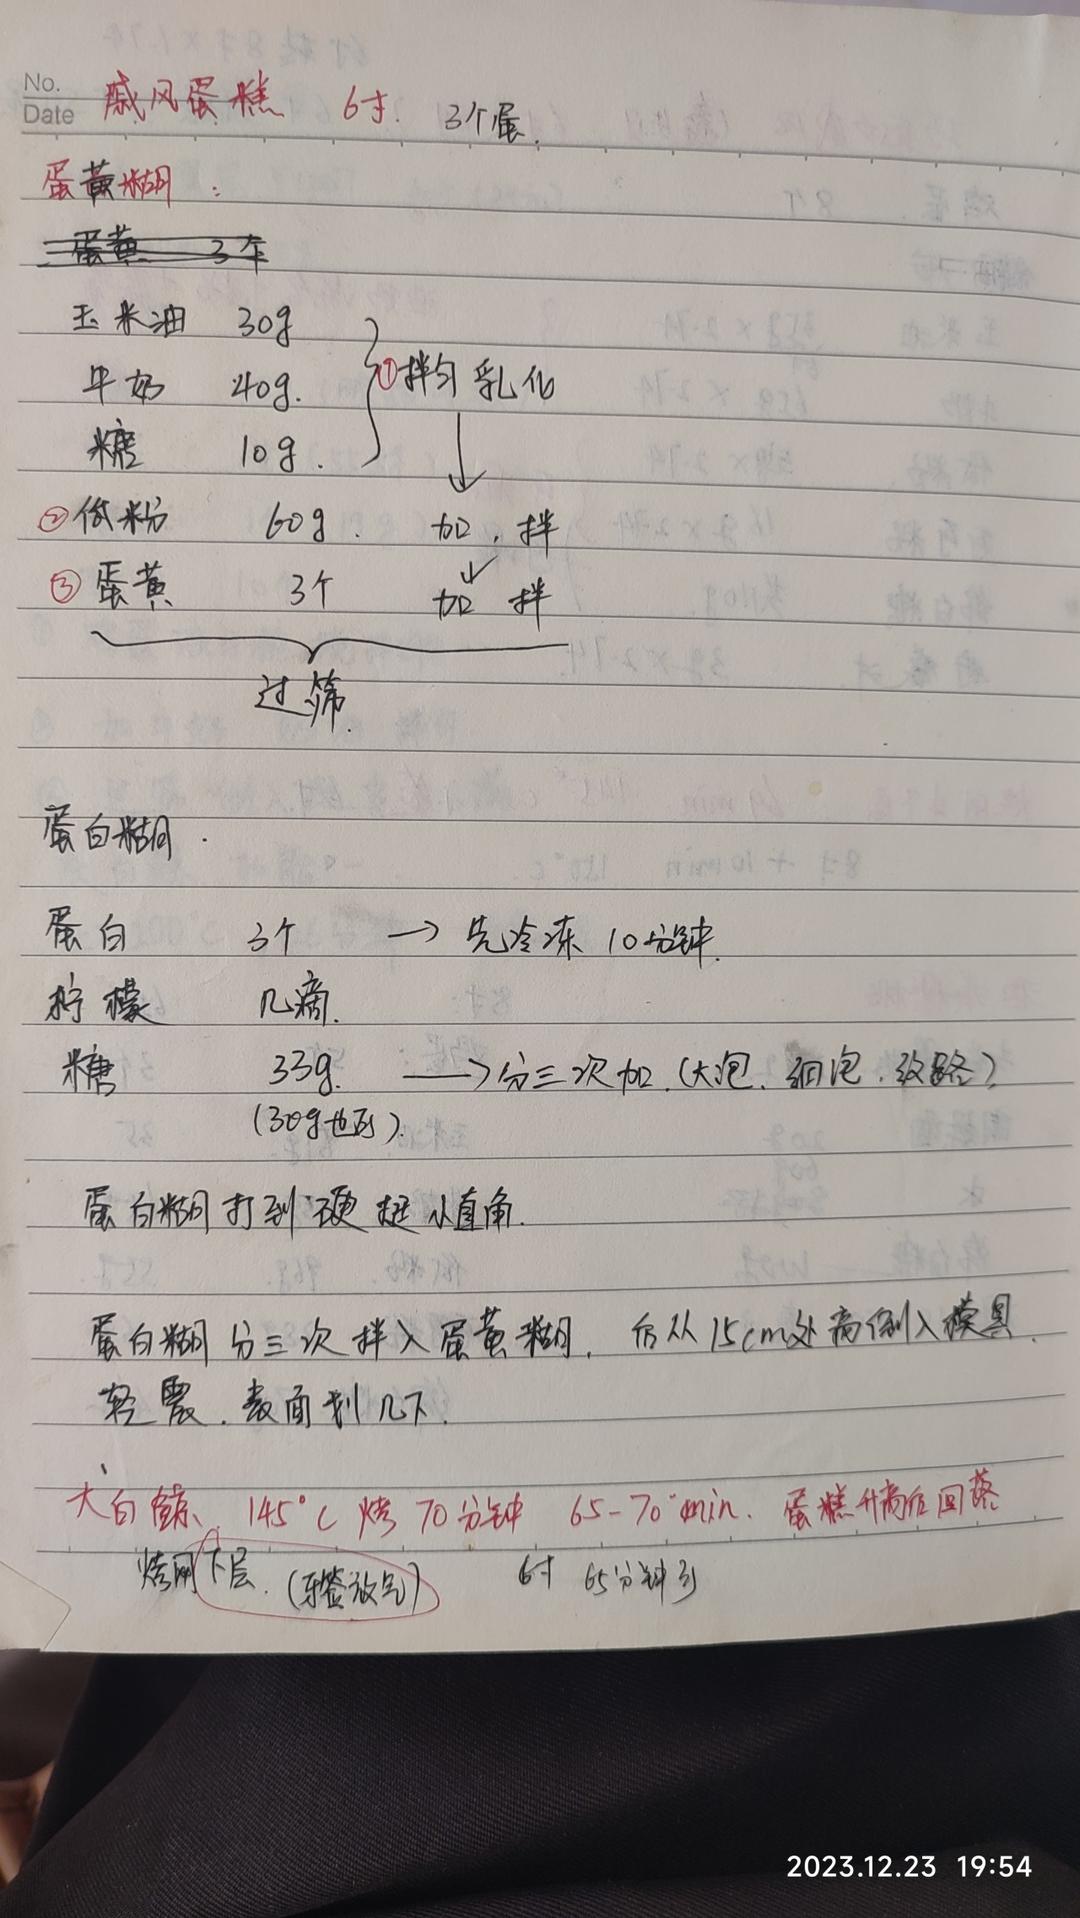 No.
Date
戚风蛋糕 6寸. 3个蛋.
蛋黄糊：
蛋黄 3个
玉米油 30g
牛奶 40g.
糖 10g.
①拌匀 乳化
②低粉 60g. 加, 拌
③蛋黄 3个 加 拌
过筛.
蛋白糊.
蛋白 3个 → 先冷冻 10分钟.
柠檬 几滴.
糖 33g. → 分三次加.(大泡、细泡、纹路)
(30g也可).
蛋白糊打到硬挺小直角.
蛋白糊分三次拌入蛋黄糊. 后从15cm处高倒入模具.
轻震. 表面划几下.
大白鲸、145°C 烤 70分钟 65-70min. 蛋糕升高后回落
烤网下层.(牙签放气) 6寸 65分钟
2023.12.23 19:54